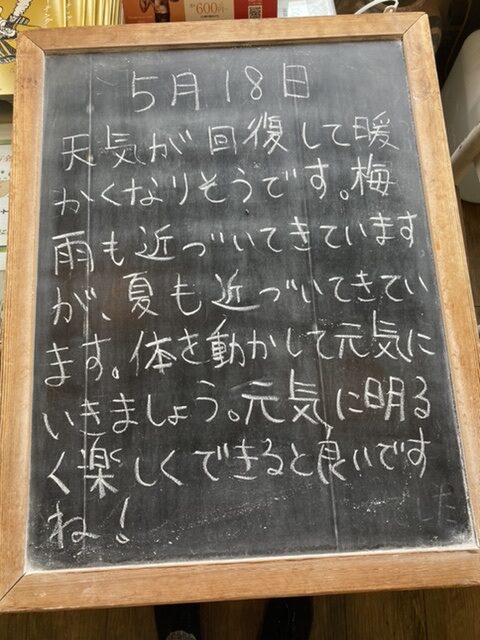 600円
5月18日
天気が回復して暖
かくなりそうです。梅
雨も近づいてきています
が、夏も近づいてきてい
ます。体を動かして元気に
いきましょう。元気に明る
く楽しくできると良いです
ね！